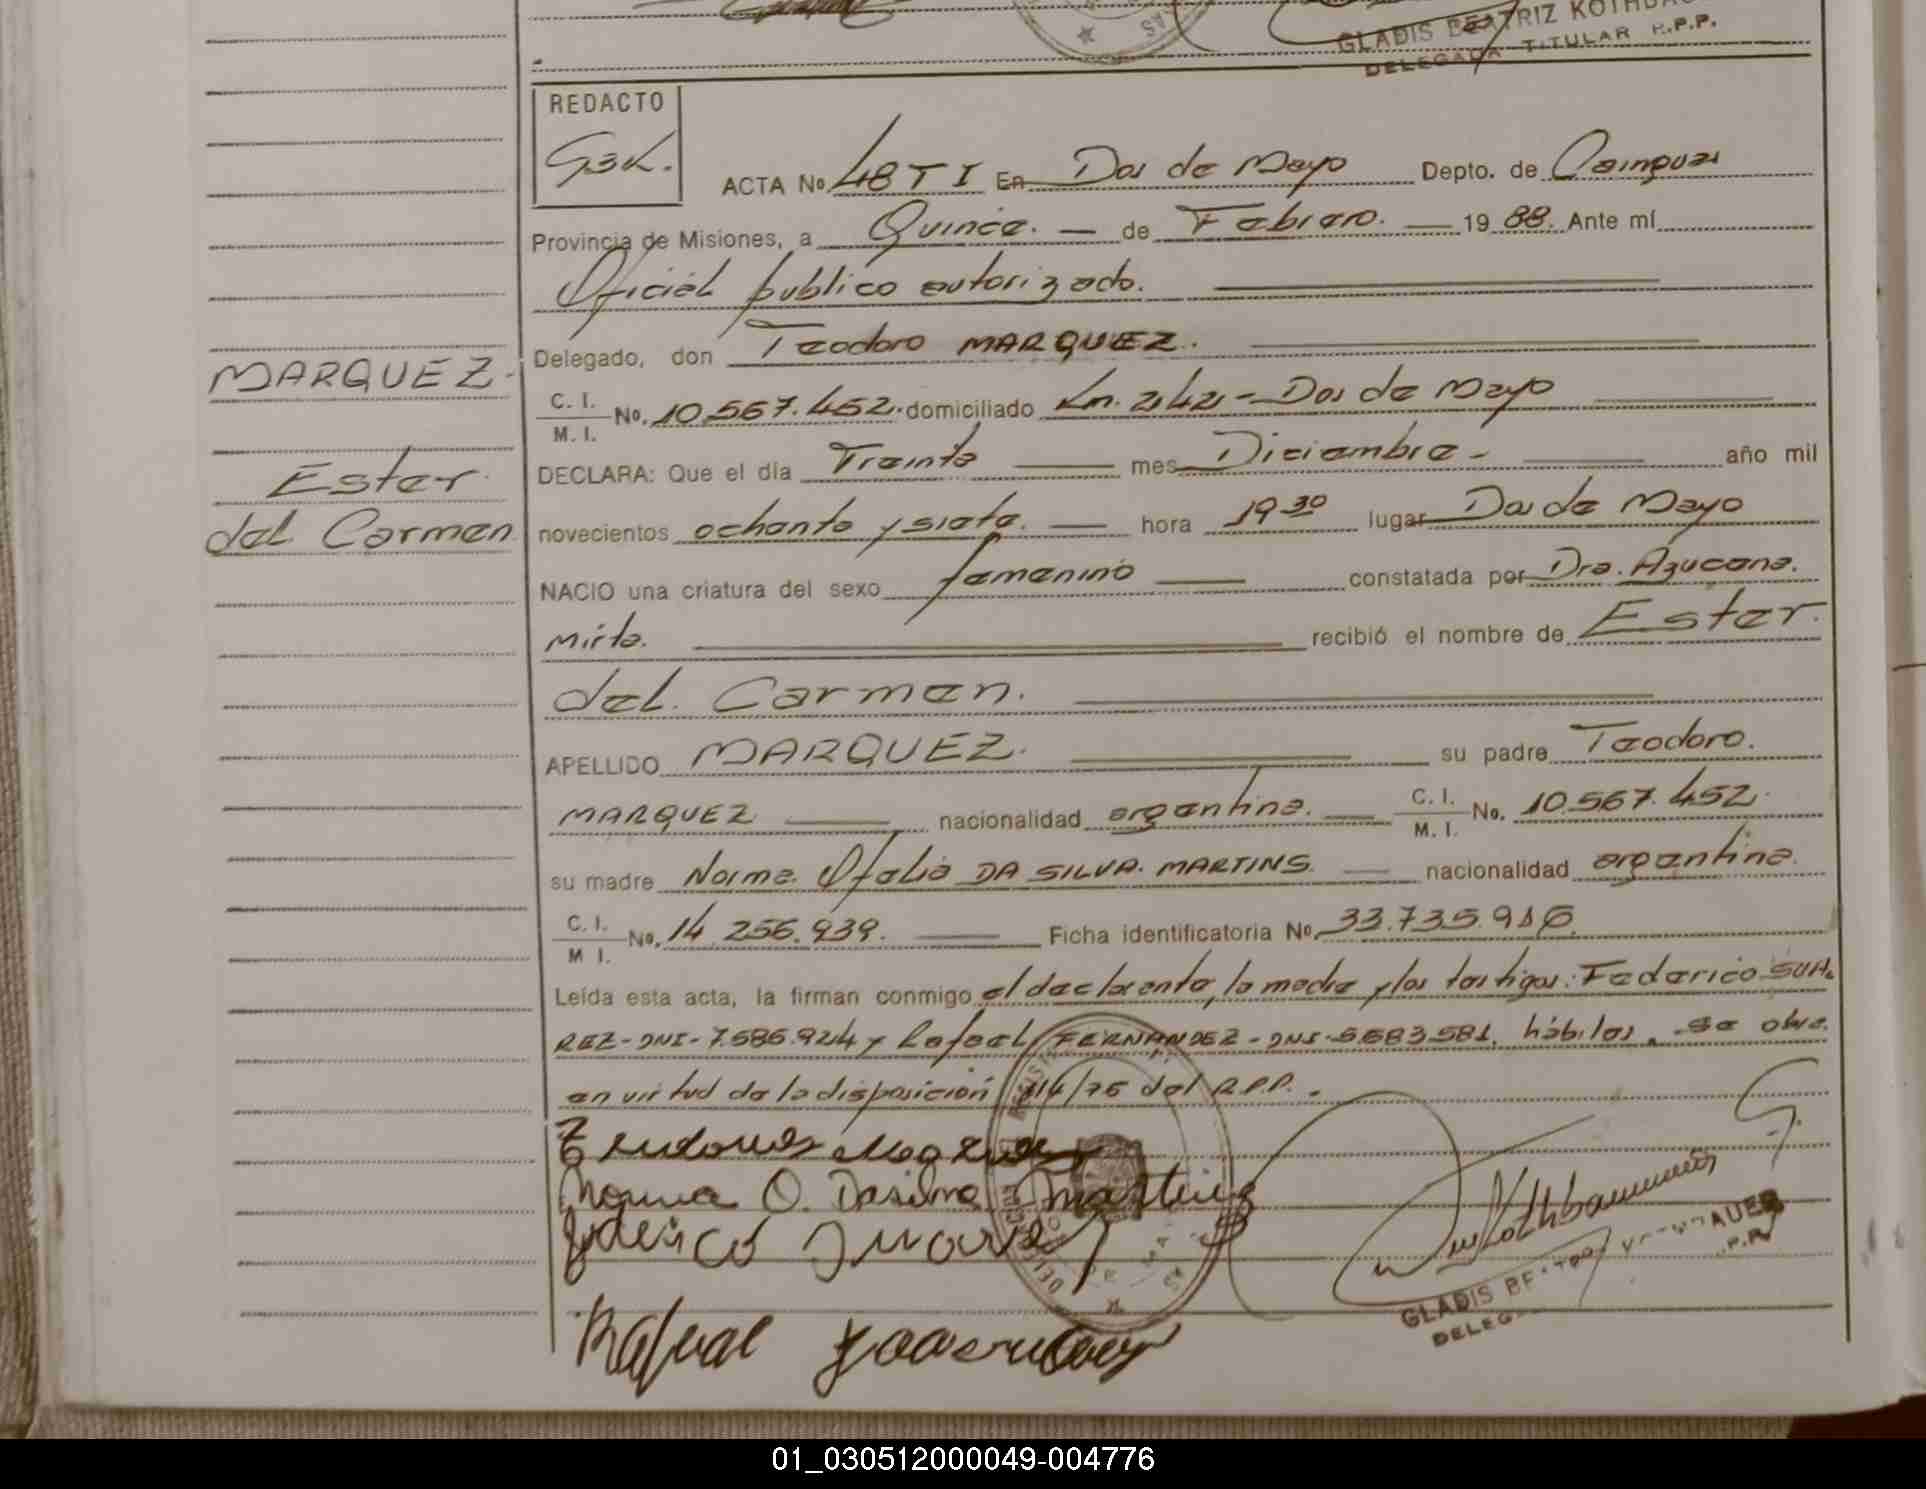 GLADIS BEATRIZ KOTHBA
DELEGADA TITULAR R.P.P.
REDACTO
GBK.
ACTA No. 48 T I En Dos de Mayo Depto. de Cainguas
Provincia de Misiones, a Quince. — de Febrero. — 19 88. Ante mí
Oficial público autorizado.
Delegado, don Teodoro MARQUEZ.
MARQUEZ.
C. I. / M. I. No. 10.567.452. domiciliado Ln. 242 - Dos de Mayo
DECLARA: Que el día Treinta — mes Diciembre - año mil
Ester
novecientos ochenta y siete. — hora 19 30 lugar Dos de Mayo
del Carmen
NACIO una criatura del sexo femenino — constatada por Dra. Azucena.
Mirta. recibió el nombre de Ester.
del. Carmen.
APELLIDO MARQUEZ. su padre Teodoro.
MARQUEZ — nacionalidad argentina. — C. I. / M. I. No. 10.567.452.
su madre Norma Ofelia DA SILVA. MARTINS. — nacionalidad argentina.
C. I. / M I. No. 14 256.939. — Ficha identificatoria No. 33.735.916.
Leída esta acta, la firman conmigo el declarante, la madre y los testigos: Federico SUA
REZ - DNI - 7.585.924 y Rafael FERNANDEZ - DNI - 5.683.581, hábiles. Se
en virtud de la disposición 114/76 del R.P.P. .
Norma O. Dasilva Martins
Federico Suarez
Kothbauer
GLADIS BE AUER
DELEG R.P.P.
Rafael
01_030512000049-004776